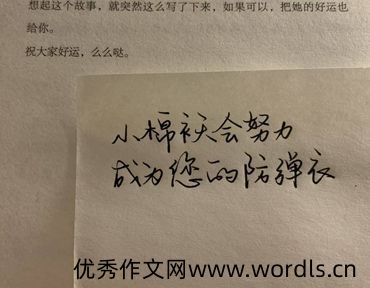 想起这个故事，就突然这么写了下来，如果可以，把她的好运也
给你。
祝大家好运，么么哒。
小棉袄会努力
成为您的防弹衣
优秀作文网www.wordls.cn